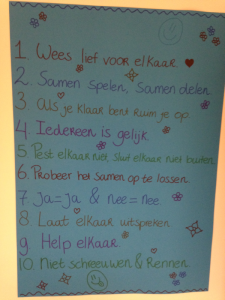 1. Wees lief voor elkaar.
2. Samen spelen, Samen delen
3. Als je klaar bent ruim je op.
4. Iedereen is gelijk
5. Pest elkaar niet, sluit elkaar niet buiten.
6. Probeer het samen op te lossen.
7. Ja=ja & nee=nee.
8. Laat elkaar uitspreken
9. Help elkaar
10. Niet schreeuwen & Rennen